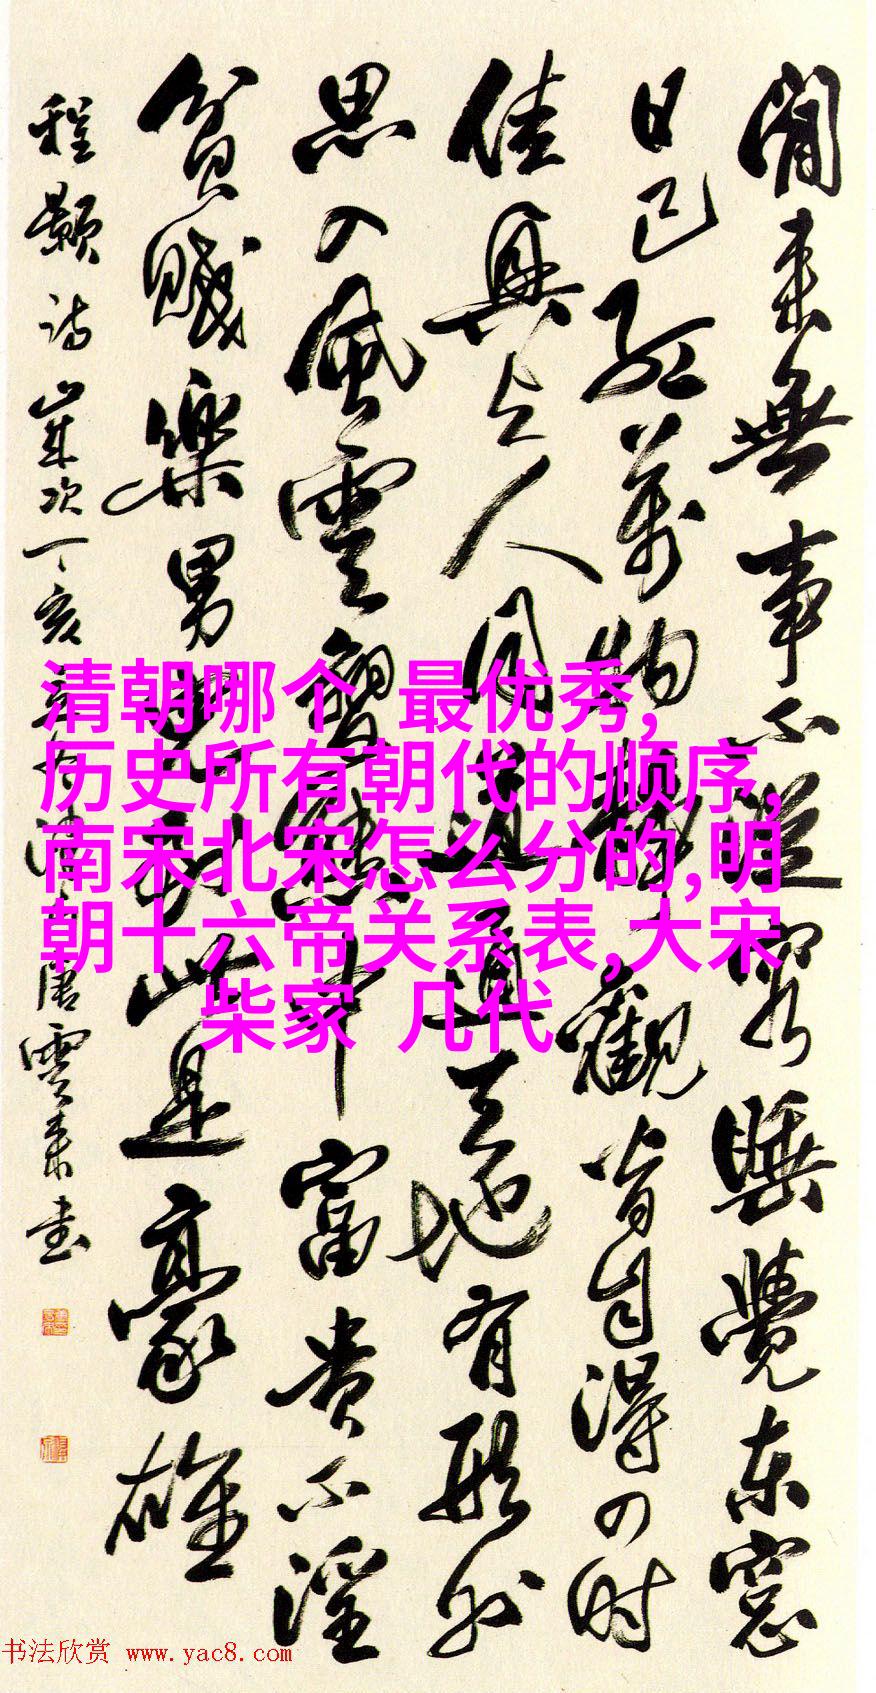 閒来無事不從容睡覺东窓
日已红萬物静觀皆自得四时
佳興与人同道通天地有形外
思入風雲變態中富貴不淫
貧賤樂男児到此是豪雄
程颢诗歲次丁亥唐雲来书
清朝哪个 最优秀,
历史所有朝代的顺序,
南宋北宋怎么分的,明
朝十六帝关系表,大宋
柴家 几代
书法欣赏 www.yac8.com